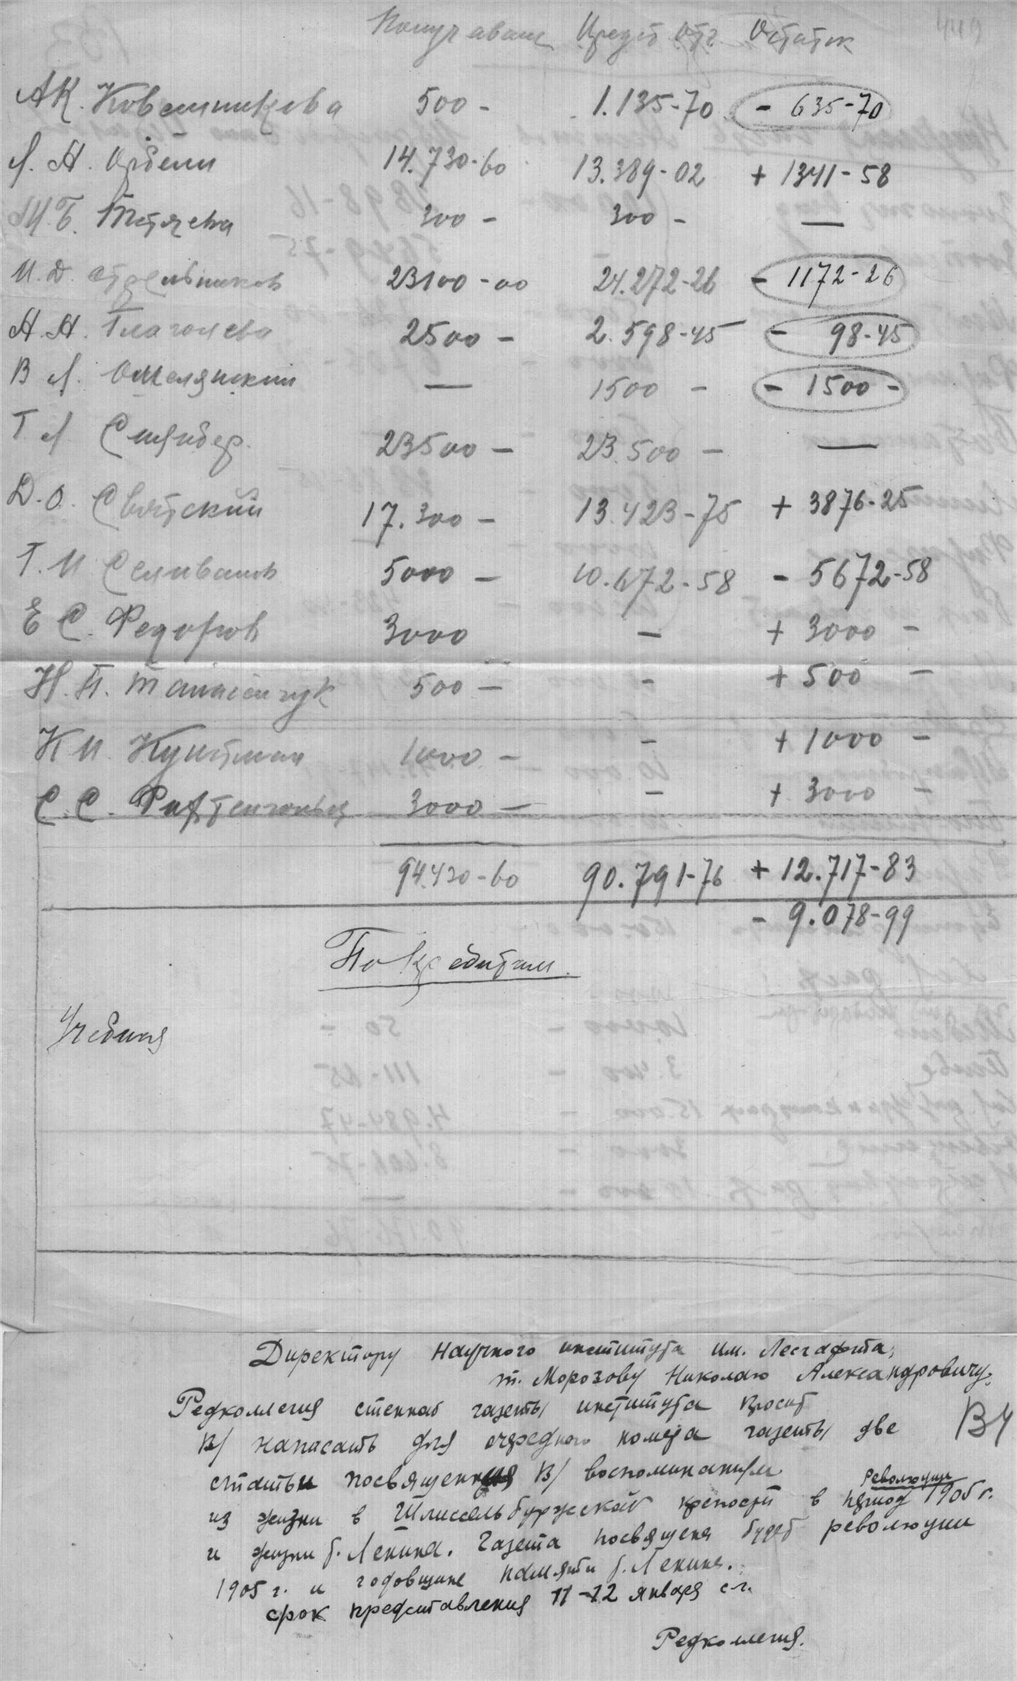 Получ аванс Предст отч Остаток
А.К. Ковешникова 500 - 1.135-70 - 635-70
Л. А. Орбели 14.730-60 13.389-02 + 1341-58
М.Б. Тетяева 300 - 300 - —
И.Д. Стрельников 23100-00 24.272-26 - 1172-26
А.А. Глаголева 2500 - 2.598-45 - 98-45
В Л. Омелянский — 1500 - - 1500 -
Г Л 23500 - 23.500 - —
Д.О. Святский 17.300 - 13.423-75 + 3876-25
Г.И Селиванов 5000 - 10.672-58 - 5672-58
Е С. Федоров 3000 - + 3000 -
Н. П. 500 - - + 500 -
К И. 1000 - - + 1000 -
С. С. 3000 - - + 3000 -
94.430-60 90.791-76 + 12.717-83
- 9.078-99
По кредитам.
Учебная
Директору Научного института им. Лесгафта,
т. Морозову Николаю Александровичу.
Редколлегия стенной газеты института просит
В/ написать для очередного номера газеты две
статьи посвященные В/ воспоминаниям
из жизни в Шлиссельбургской крепости в период революции 1905 г.
и жизни Ленина. Газета посвящена будет революции
1905 г. и годовщине памяти Ленина.
срок представления 11-12 января с.г.
Редколлегия.
ВЧ